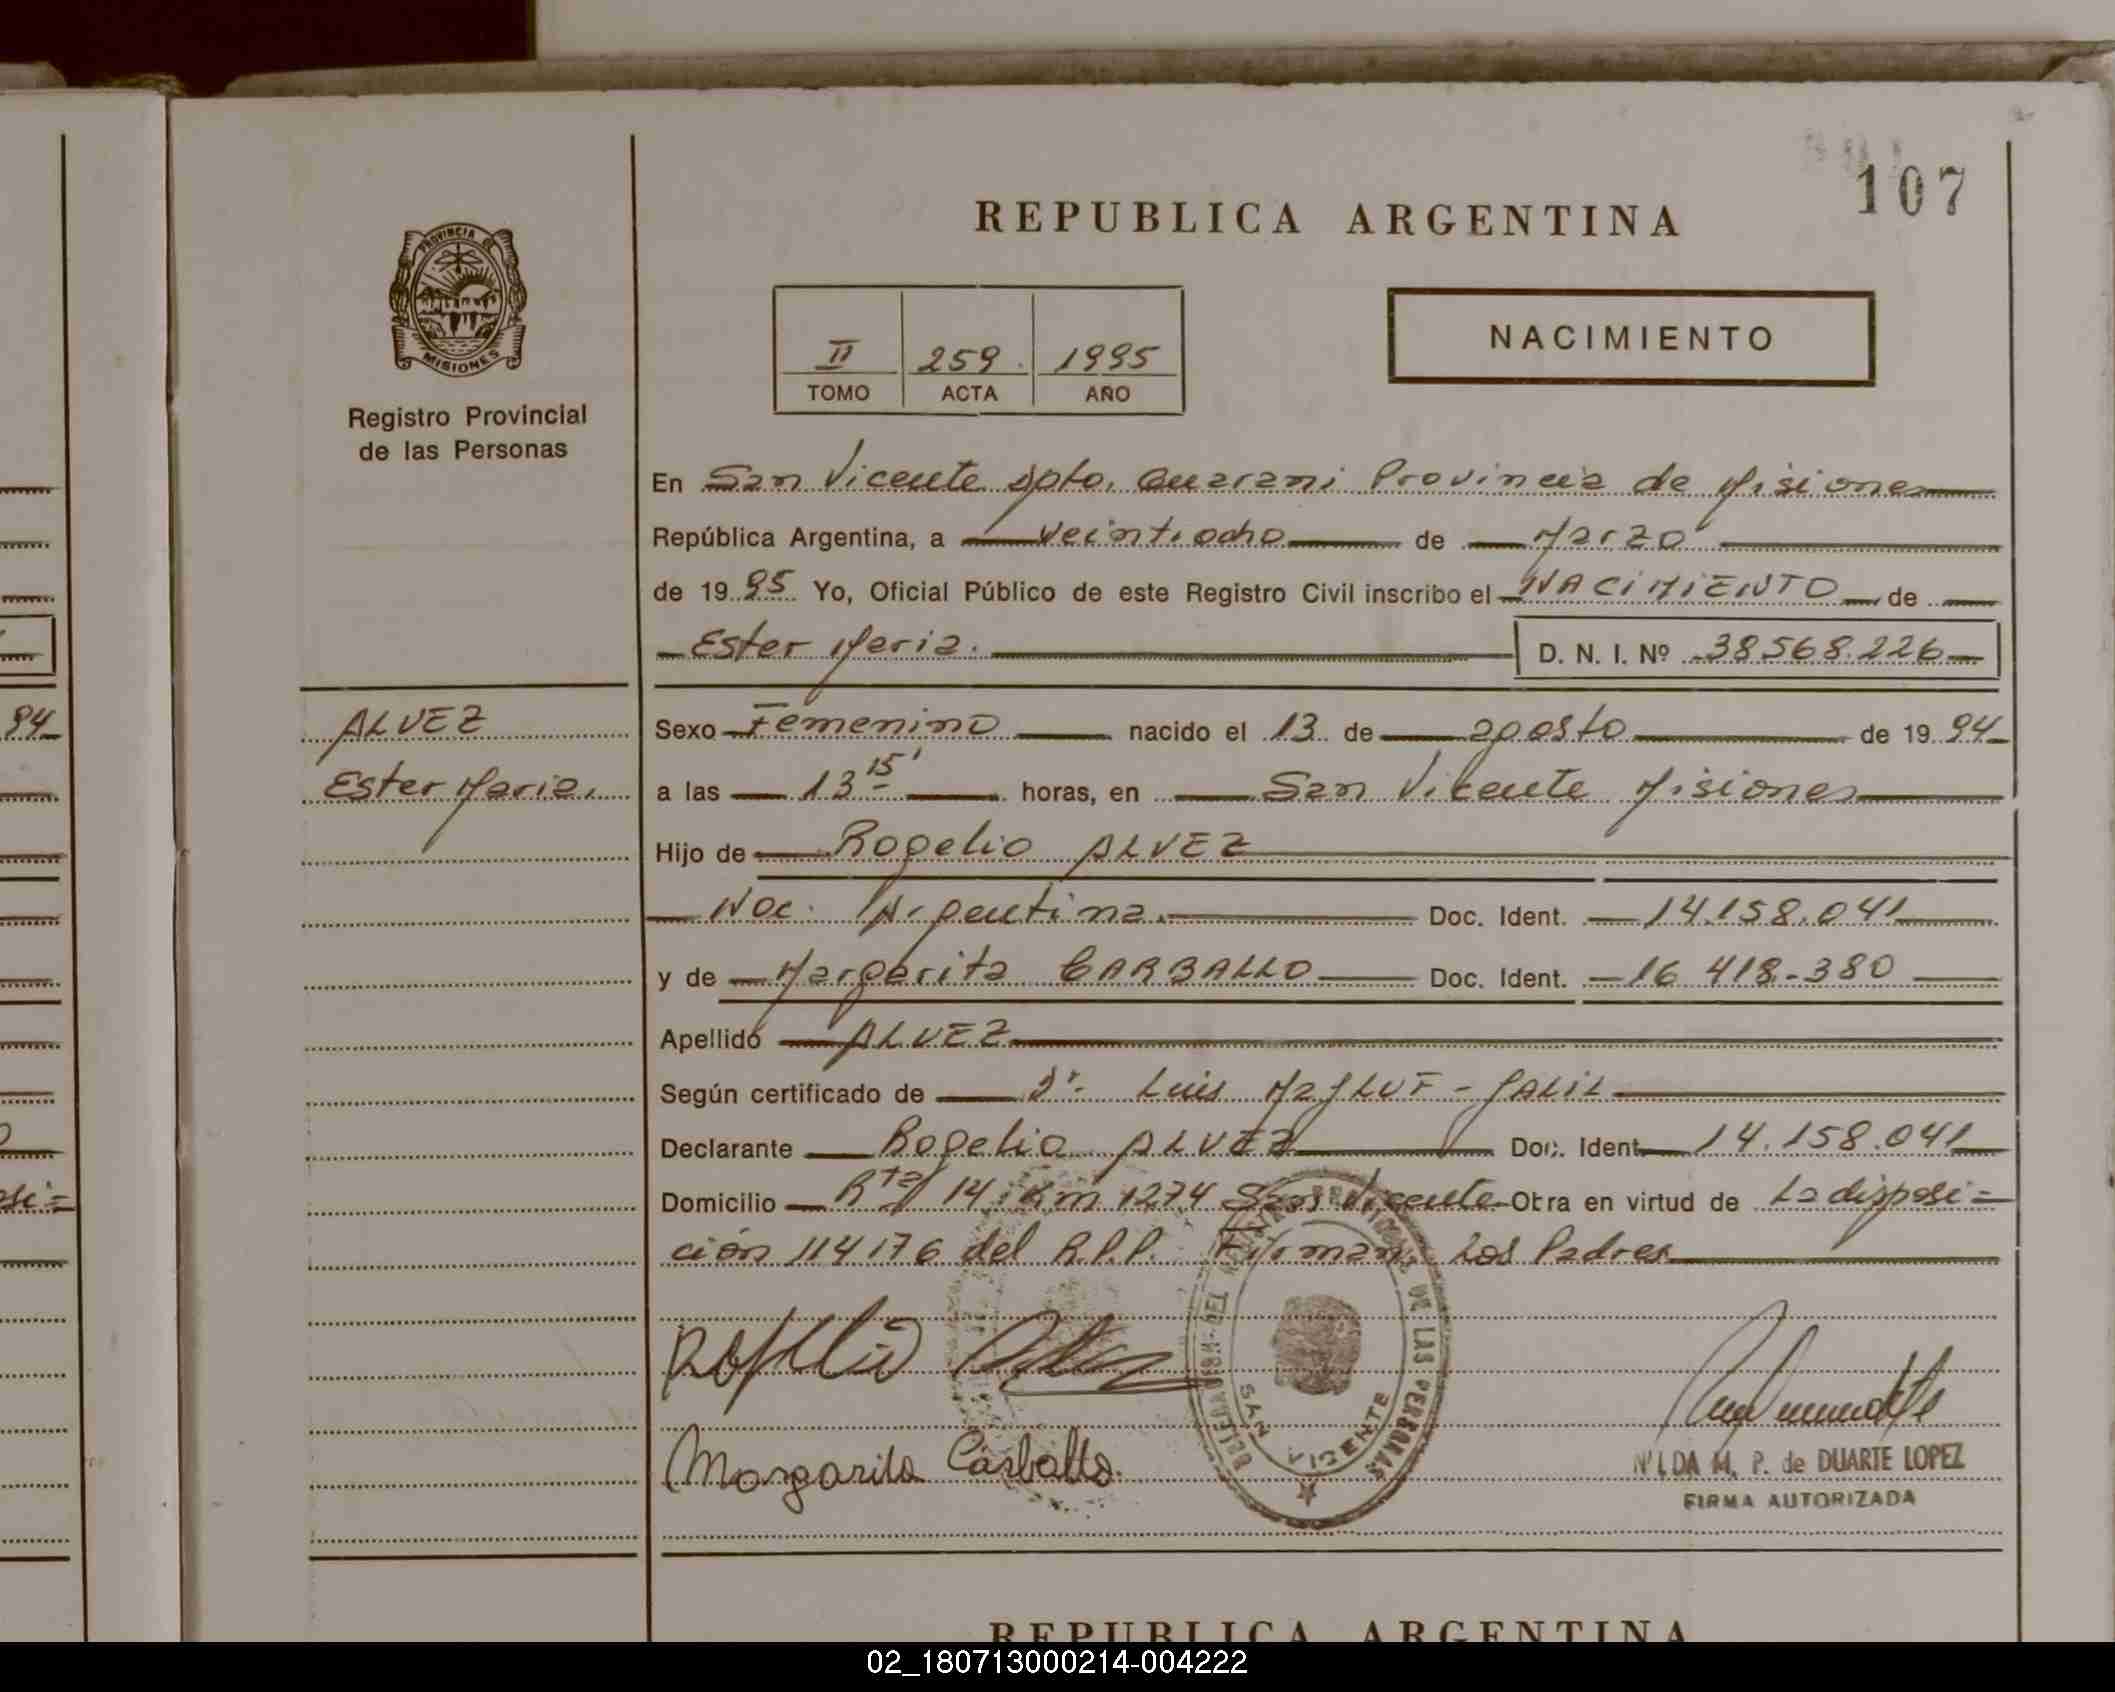 107
REPUBLICA ARGENTINA
PROVINCIA DE
MISIONES
Registro Provincial
de las Personas
II 259 1995
TOMO ACTA AÑO
NACIMIENTO
En San Vicente Dpto. Guarani Provincia de Misiones
República Argentina, a veintiocho de Marzo
de 1995 Yo, Oficial Público de este Registro Civil inscribo el NACIMIENTO de
Ester Maria. D. N. I. Nº 38.568.226
ALVEZ
Ester Maria.
94
Sexo Femenino nacido el 13 de agosto de 1994
a las 13 15' horas, en San Vicente Misiones
Hijo de Rogelio ALVEZ
Nac. Argentina. Doc. Ident. 14.158.041
y de Margarita CARBALLO Doc. Ident. 16 418.380
Apellido ALVEZ
Según certificado de Dr. Luis
Declarante Rogelio ALVEZ Doc. Ident. 14.158.041
Domicilio Rta/ 14 Km 1274 San Vicente Otra en virtud de La disposi=
ción 114176 del R.P.P. Firman Los Padres
Rogelio Alvez
Margarita Carballo
DEL REGISTRO PROVINCIAL DE LAS PERSONAS
SAN VICENTE
NILDA M. P. de DUARTE LOPEZ
FIRMA AUTORIZADA
REPUBLICA ARGENTINA
02_180713000214-004222